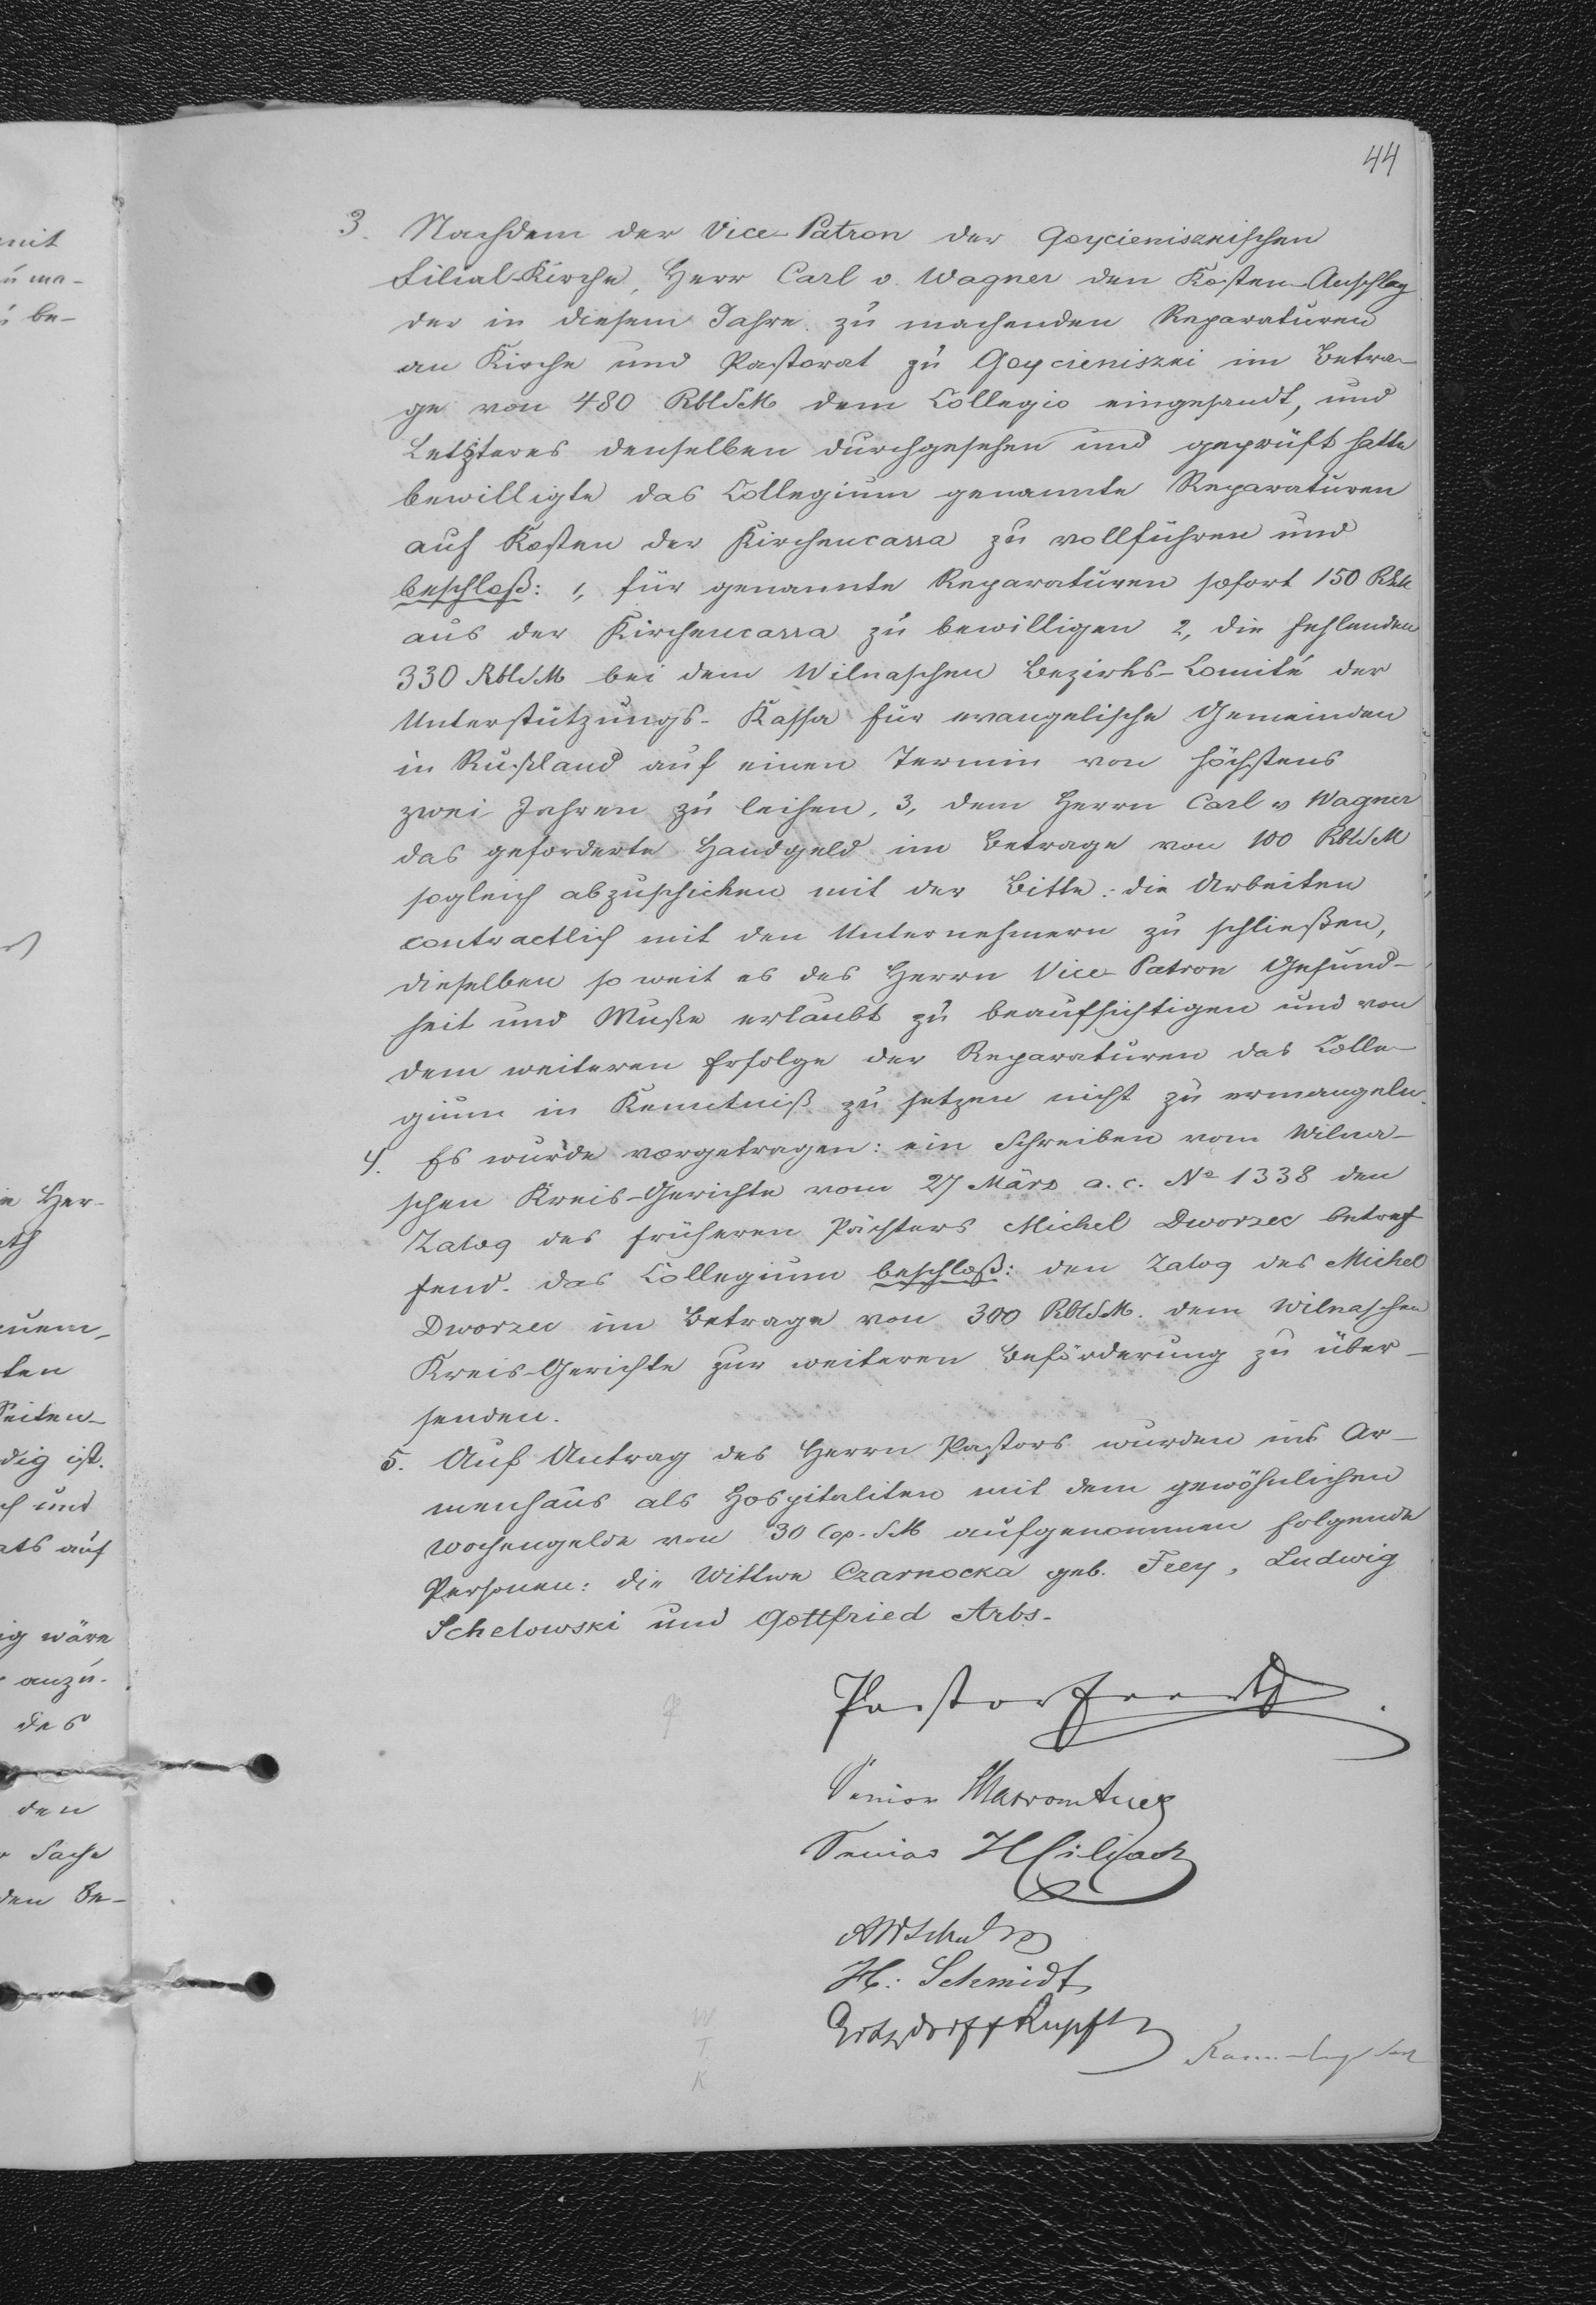 44
3. Nachdem der Vice-Patron der Goycieniszkischen
Filial-Kirche, Herr Carl v. Wagner den Kosten-Anschlag
der in diesem Jahre zu machenden Reparaturen
an Kirche und Pastorat zu Goycieniszki im Betra-
ge von 480 RblSM dem Collegio eingesandt, und
Letzteres denselben durchgesehen und geprüft hatte
bewilligte das Collegium genannte Reparaturen
auf Kosten der Kirchencassa zu vollführen und
beschloß: 1, für genannte Reparaturen sofort 150 Rbl
aus der Kirchencassa zu bewilligen 2, die fehlenden
330 RblSM bei dem Wilnaschen Bezirks-Comité der
Unterstützungs-Kassa für evangelische Gemeinden
in Rußland auf einen Termin von höchstens
zwei Jahren zu leihen, 3, dem Herrn Carl v Wagner
das geforderte Handgeld im Betrage von 100 RblSM
sogleich abzuschicken mit der Bitte: die Arbeiten
contractlich mit den Unternehmern zu schließen,
dieselben so weit es des Herrn Vice-Patron Gesund-
heit und Muße erlaubt zu beaufsichtigen und von
dem weiteren Erfolge der Reparaturen das Colle-
gium in Kenntniß zu setzen nicht zu ermangeln.
4. Es wurde vorgetragen: ein Schreiben vom Wilna-
schen Kreis-Gerichte vom 27 März a. c. No 1338 den
Zalog des früheren Pächters Michel Dworzec betref
fend. Das Collegium beschloß: den Zalog des Michel
Dworzec im Betrage von 300 RblSM. dem Wilnaschen
Kreis-Gerichte zur weiteren Beförderung zu über-
senden.
5. Auf Antrag des Herrn Pastors wurden ins Ar-
menhaus als Hospitaliten mit dem gewöhnlichen
Wochengelde von 30 Cop. SM aufgenommen folgende
Personen: die Wittwe Czarnocka geb. Frey, Ludwig
Schelowski und Gottfried Arbs.
Pastor
Senior
Senior
H. Schmidt
W
T
K
mit
be-
Her-
ten
Seiten-
dig ist.
und
auf
wäre
anzu-
des
den
Sache
den Be-